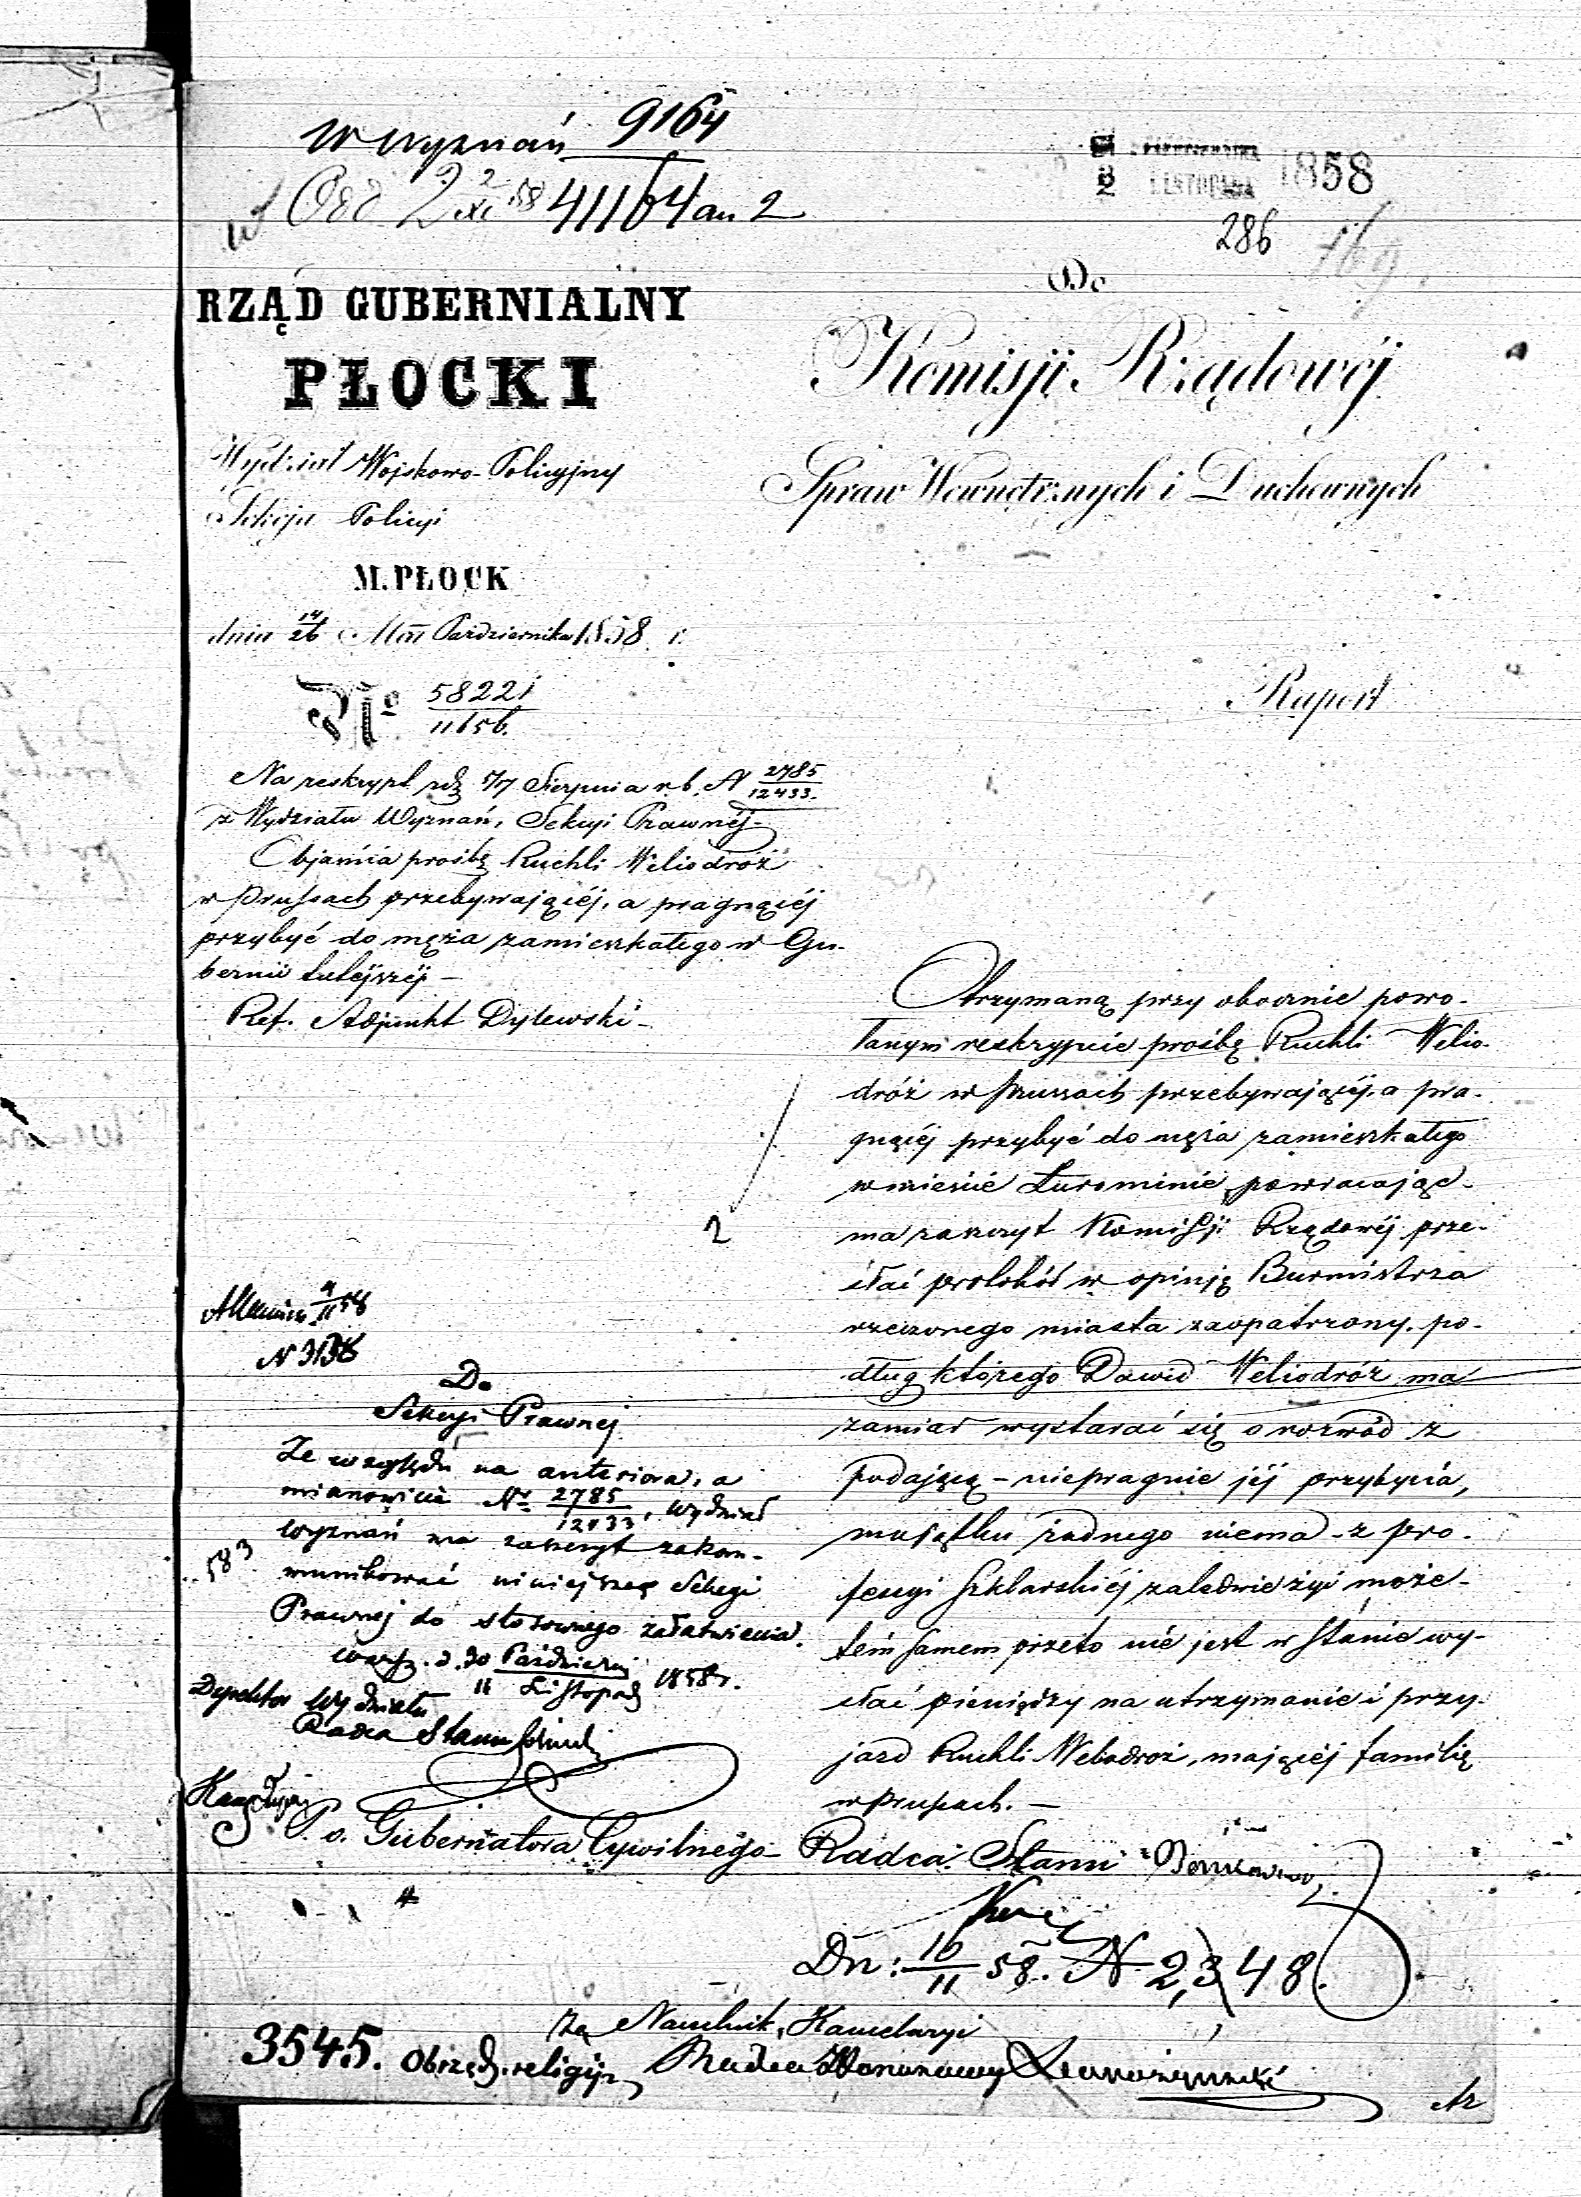 W Wyznań 9164
Odd 2 2/XI 58 41164 an 2
1858
286
169
RZĄD GUBERNIALNY
PŁOCKI
Wydział Wojskowo-Policyjny
Sekcja Policyi
M. PŁOCK
dnia 14/26 Mca Października 1858 r.
No 58221/11656.
Na reskrypt z d. 5/17 Sierpnia r. b. N 2785/12433.
z Wydziału Wyznań, Sekcyi Prawnéj
Objaśnia prośbę Ruchli Weliodróż
w Prussach przebywającéj, a pragnącéj
przybyć do męża zamieszkałego w Gu-
bernii tutejszéj –
Ref. Adjunkt Dylewski –
Do
Komisji Rządowéj
Spraw Wewnętrznych i Duchownych
Raport
Otrzymaną przy obocznie powo-
łanym reskrypcie prośbę Ruchli Welio-
dróż w Prussach przebywającéj, a pra-
gnącéj przybyć do męża zamieszkałego
w mieście Żurominie, powracając
ma zaszczyt Komissji Rządowéj prze-
słać protokół w opinję Burmistrza
rzeczonego miasta zaopatrzony, po-
dług którego Dawid Weliodróż ma
zamiar wystarać się o rozwód z
podającą – niepragnie jéj przybycia,
majątku żadnego niema – z pro-
fessyi Szklarskiéj zaledwie żyć może –
tém samem przeto nie jest w stanie wy-
słać pieniędzy na utrzymanie i przy-
jazd Ruchli Weliodróż, mającéj familię
w Prussach. –
2
4/11 58
N 3138
Do
Sekcyi Prawnej
Ze względu na anteriora, a
mianowicie Nr 2785/12433, Wydział
Wyznań ma zaszczyt zakom-
munikować niniejsze Sekcyi
Prawnej do stosownego załatwienia.
583
Warsz. d. 30 Październ/11 Listopad 1858 r.
Dyrektor Wydziału
Radca Stanu
P. o. Gubernatora Cywilnego Radca Stanu
Dn: 10/11 58. N 2,348.
Za Naczelnik Kancelaryi
3545. Obrząd. religijn Radca Honorowy